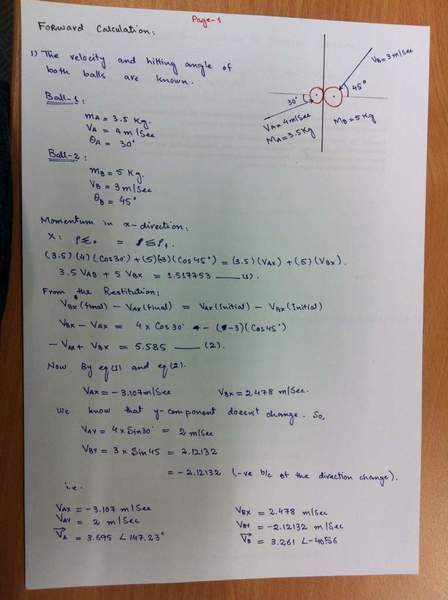 Page-1
Forward Calculation:
1) The velocity and hitting angle of
both balls are known.
Ball-1:
mA = 3.5 Kg.
VA = 4 m/Sec
θA = 30°
Ball-2:
mB = 5 Kg.
VB = 3 m/Sec
θB = 45°
VB = 3m/Sec
45°
30°
VA = 4m/Sec
MA = 3.5Kg
MB = 5Kg
Momentum in x-direction:
(3.5)(4)(Cos30°) + (5)(-3)(Cos45°) = (3.5)(VAX) + (5)(VBX).
3.5 VAX + 5 VBX = 1.517753 — (1).
From the Restitution:
VBX(final) - VAX(final) = VAX(initial) - VBX(initial)
VBX - VAX = 4 x Cos30° - (-3)(Cos45°)
- VAX + VBX = 5.585 — (2).
Now By eq(1) and eq(2).
VAX = -3.107 m/Sec VBX = 2.478 m/Sec.
We know that y-component doesn't change. So,
VAY = 4 x Sin30° = 2 m/Sec
VBY = 3 x Sin 45 = 2.12132
= -2.12132 (-ve b/c of the direction change).
i.e-
VAX = -3.107 m/Sec VBX = 2.478 m/Sec.
VAY = 2 m/Sec VBY = -2.12132 m/Sec
VA = 3.695 ∠147.23° VB = 3.261 ∠-40.56